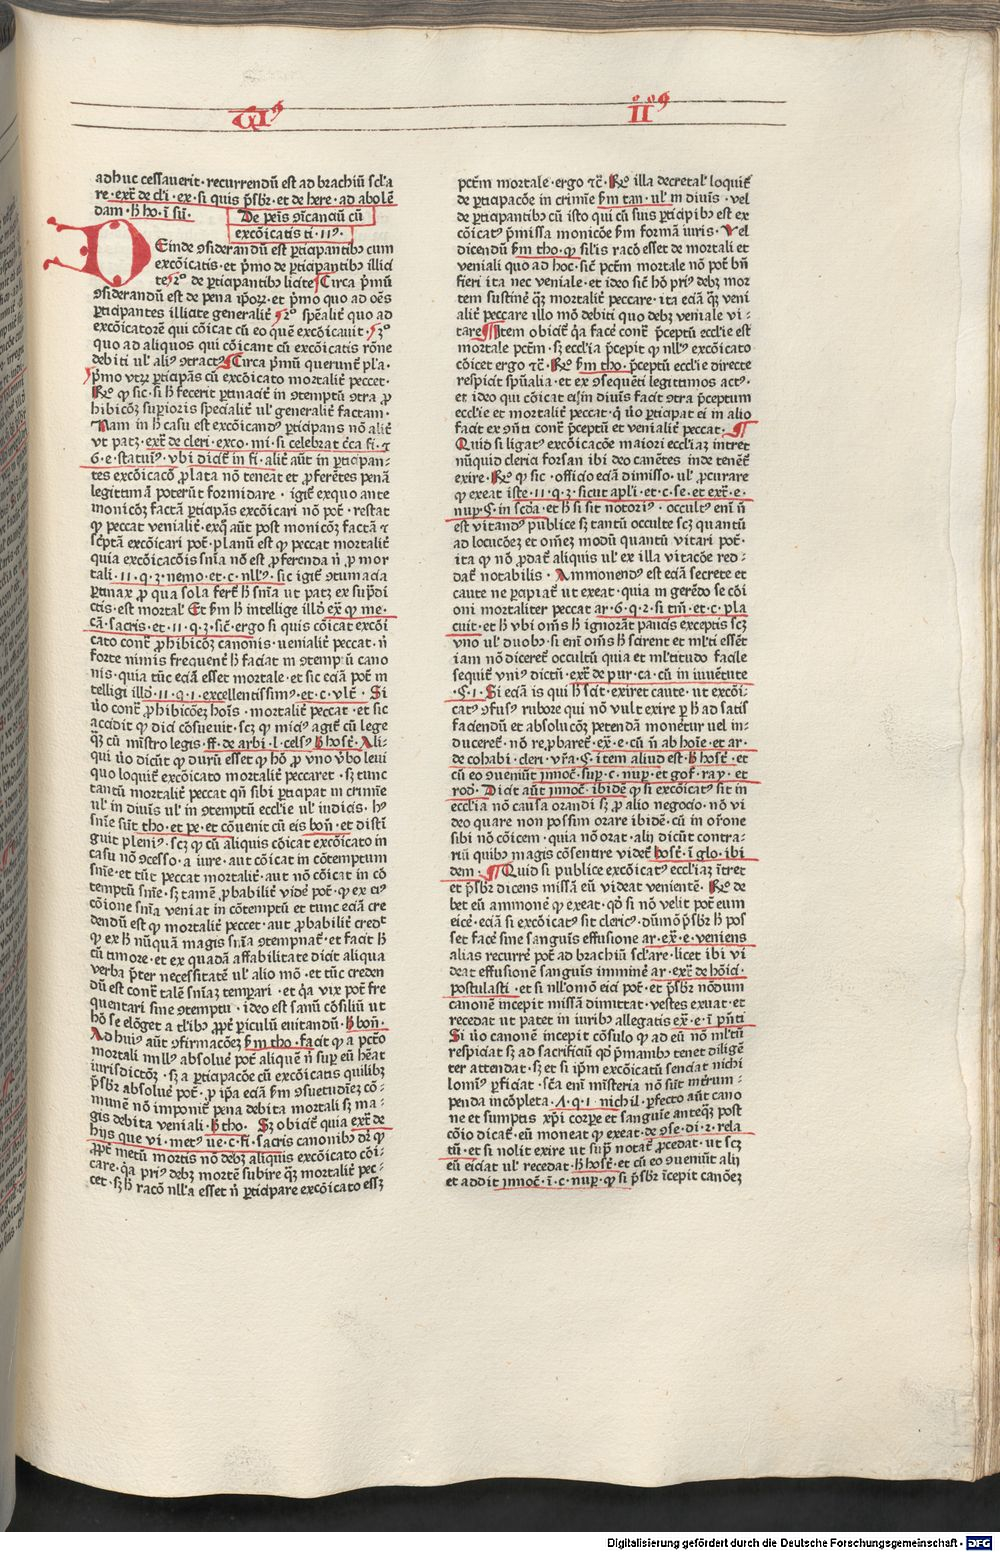 VIꝰ IIꝰ
adhuc cessauerit · recurrendū est ad brachiū scl'a
re · ext̄ de cl'i · ex · si quis p̄sbr̄ · et de here · ad abolē
dam · ꝑ ho · ī sū.
De peīs ꝯicanciū cū
excōicatis ti · 11ꝰ.
DEinde ꝯsiderandū est ꝑticipantibꝫ cum
excōicatis · et p̄mo de ꝑticipantibꝫ illici
te · 2º de ꝑticipantibꝫ licite Circa p̄mū
ꝯsiderandū est de pena ip̄oꝝ · et p̄mo quo ad oēs
ꝑticipantes illicite generalit̄ · 2º spēalit̄ quo ad
excōicatorē qui cōicat cū eo quē excōicauit · 3º
quo ad aliquos qui cōicant cū excōicatis rōne
debiti ul' aliꝰ ꝯtractꝰ Circa p̄mū querunt̄ pl'a ·
p̄mo vtꝝ ꝑticipās cū excōicato mortalit̄ peccet ·
Rº ꝙ sic · si ħ fecerit ꝑtinacit̄ in ꝯtemptū ꝯtra ꝓ
hibicōꝫ suꝑioris specialit̄ ul' generalit̄ factam ·
Nam in ħ casu est excōicandꝰ ꝑticipans nō alit̄
vt patꝫ · ext̄ de cleri · exco · mi · si celebrat c̄ca fi · ⁊
6 · e · statuiꝰ · vbi dicit̄ in fi · alit̄ aūt in ꝑticipan-
tes excōicacō ꝓlata nō teneat et ꝓferētes penā
legittimā poterūt formidare · igit̄ exquo ante
monicōꝫ factā ꝑticipās excōicari nō pot̄ · restat
ꝙ peccat venialit̄ · exq̄ aūt post monicōꝫ factā ⁊
sc̄ptā excōicari pot̄ · planū est ꝙ peccat mortalit̄
quia excōicacōis sn̄ia nō est ꝓferenda n̄ ꝓ mor
tali · 11 · q · 3 · nemo · et · c · nll'ꝰ · sic igit̄ ꝯtumacia
ꝑtinax ꝓ qua sola fert̄ ħ sn̄ia ut patꝫ ex sup̄di
ctis · est mortal' Et p̄m ħ intellige illd̄ ex̄ ꝙ me ·
cā · sacris · et · 11 · q · 3 · sic̄ · ergo si quis cōicat excōi
cato cont̄ ꝓhibicōꝫ canonis · uenialit̄ peccat · n̄
forte nimis frequent̄ ħ faciat in ꝯtemp ū cano
nis · quia tūc eciā esset mortale · et sic eciā pot̄ in
telligi illd̄ · 11 · q · 1 · excellentissimꝰ · et · c · vlt̄ · Si
ūo cont̄ ꝓhibicōeꝫ hoīs · mortalit̄ peccat · et sic
accidit ꝙ dici cōsueuit · scꝫ ꝙ miciꝰ agit̄ cū lege
qꝫ cū mīstro legis · ff · de arbi · l · celsꝰ ꝑ hosē · Ali-
qui ūo dicūt ꝙ durū esset ꝙ hō ꝓ vno v̄bo leui
quo loquit̄ excōicato mortalit̄ peccaret · sꝫ tunc
tantū mortalit̄ peccat qn̄ sibi ꝑticipat in crimīe
ul' in diuīs ul' in ꝯtemptū eccl'ie ul' iudicis · hꝰ
snīe sūt tho · et pe · et cōuenit cū eis bon̄ · et distī
guit pleniꝰ · scꝫ ꝙ cū aliquis cōicat excōicato in
casu nō ꝯcesso · a iure · aut cōicat in cōtemptum
snīe · et tūc peccat mortalit̄ · aut nō cōicat in cō
temptū snīe · sꝫ tamē ꝓbabilit̄ vidē pot̄ · ꝙ ex eiꝰ
cōione snīa veniat in cōtemptū et tunc eciā cre
dendū est ꝙ mortalit̄ peccet · aut ꝓbabilit̄ credt̄
ꝙ ex ħ nūquā magis snīa ꝯtempnat̄ · et facit ħ
cū timore · et ex quadā affabilitate dicit aliqua
verba p̄ter necessitatē ul' alio mō · et tūc creden
dū est cont̄ talē snīaꝫ temꝑari · et q̄a vix pot̄ fre
quentari sine ꝯtemptu · ideo est sanū cōsiliū ut
hō se elōget a tl'ibꝫ ꝓpt̄ ꝑiculū euitandū · ꝑ bon̄ ·
Ad huiꝰ aūt ꝯfirmacōeꝫ p̄m tho · facit ꝙ a pctō
mortali nullꝰ absoluē pot̄ aliquē n̄ suꝑ eū hēat
iurisdictōꝫ · sꝫ a ꝑticipacōe cū excōicatis quilibꝫ
p̄sbr̄ absoluē pot̄ · ꝓ ip̄a eciā p̄m ꝯsuetudīeꝫ cō-
munē nō imponit̄ pena debita mortali sꝫ ma-
gis debita veniali · ꝑ tho · Sꝫ obicit̄ quia ext̄ de
hijs que vi · metꝰ ue · c · fi · sacris canonibꝫ dr̄ ꝙ
ꝓpt̄ metū mortis nō debꝫ aliquis excōicato cōi-
care · q̄a priꝰ debꝫ mortē subire qꝫ mortalit̄ pec-
cet · sꝫ ħ racō nll'a esset n̄ ꝑticipare excōicato essꝫ
pctm̄ mortale · ergo ⁊c̄ · Rº illa decretal' loquit̄
de ꝑticipacōe in crimīe p̄m tan · ul' in diuīs · vel
de ꝑticipantibꝫ cū isto qui cū suis ꝑticipibꝫ est ex
cōicatꝰ p̄missa monicōe p̄m formā iuris · Vel
dicendū p̄m tho · ꝙ sil'is racō esset de mortali et
veniali quo ad hoc · sic̄ pctm̄ mortale nō pot̄ bn̄
fieri ita nec veniale · et ideo sic̄ hō priꝰ debꝫ mor
tem sustinē qꝫ mortalit̄ peccare · ita eciā qꝫ veni
alit̄ peccare illo mō debiti quo debꝫ veniale vi-
tare ¶ Item obicit̄ q̄a facē cont̄ p̄ceptū eccl'ie est
mortale pctm̄ · sꝫ eccl'ia p̄cepit ꝙ nll'ꝰ excōicato
cōicet ergo ⁊c̄ · Rº p̄m tho · p̄ceptū eccl'ie directe
respicit spūalia · et ex ꝯsequēti legittimos actꝰ ·
et ideo qui cōicat ei in diuīs facit ꝯtra p̄ceptum
eccl'ie et mortalit̄ peccat · q̄ ūo ꝑticipat ei in alio
facit ex ꝯn̄ti cont̄ p̄ceptū et venialit̄ peccat · ¶
Quid si ligatꝰ excōicacōe maiori eccl'iaꝫ intret
nūquid clerici forsan ibi deo canētes inde tenēt̄
exire · Rº ꝙ sic · officio eciā dimisso · ul' ꝓcurare
ꝙ exeat iste · 11 · q · 3 · sicut apl'i · et · c · se · et ex̄ · e ·
nuꝑ · § · in sc̄da · et ħ si sit notoriꝰ · occultꝰ enī n̄
est vitandꝰ publice sꝫ tantū occulte scꝫ quantū
ad locucōeꝫ et oīneꝫ modū quantū vitari pot̄ ·
ita ꝙ nō ꝓdat̄ aliquis ul' ex illa vitacōe red-
dat̄ notabilis · Ammonendꝰ est eciā secrete et
caute ne ꝑcipiat̄ ut exeat · quia in gerēdo se cōi
oni mortaliter peccat ar · 6 · q · 2 · si tm̄ · et · c · pla
cuit · et ħ vbi oīns ħ ignorāt paucis exceptis scꝫ
vno ul' duobꝫ · si enī oīns ħ scirent et ml'ti essēt
iam nō diceret̄ occultū quia et ml'titudo facile
sequit̄ vniꝰ dictū · ext̄ de pur · ca · cū in iuuētute
· § · 1 · Si eciā is qui ħ scit · exiret caute · ut excōi-
catꝰ ꝯfusꝰ rubore qui nō vult exire ꝑ ħ ad satis
faciendū et absolucōꝫ petendā monetur uel in-
duceret̄ · nō reꝓbaret̄ · ex̄ · e · cū n̄ ab hoīe · et ar ·
de cohabi · cleri · vr̄a · § · item aliud est · ꝑ hosē · et
cū eo ꝯueniūt innoc̄ · suꝑ · c · nuꝑ · et gof · ray · et
rod̄ · Dicit aūt innoc̄ · ibidē ꝙ si excōicatꝰ sit in
eccl'ia nō causa orandi sꝫ ꝓ alio negocio · nō vi
deo quare non possim orare ibidē · cū in or̄one
sibi nō cōicem · quia nō orat · alij dicūt contra-
riū quibꝫ magis cōsentire videt̄ hosē · ī glo · ibi
dem · ¶ Quid si publice excōicatꝰ eccl'iaꝫ īntret
et p̄sbr̄ dicens missā eū videat venientē · Rº de
bet eū ammonē ꝙ exeat · qd̄ si nō velit pot̄ eum
eicē · eciā si excōicatꝰ sit clericꝰ · dūmō p̄sbr̄ ħ pos
set facē sine sanguīs effusione ar · ex̄ · e · veniens
alias recurrē pot̄ ad brachiū scl'are · licet ibi vi
deat effusionē sanguīs imminē ar · ext̄ de hōici ·
postulasti · et si nll'o mō eici pot̄ · et p̄sbr̄ nōdum
canonē incepit missā dimittat · vestes exuat · et
recedat ut patet in iuribꝫ allegatis ex̄ · e · ī pn̄ti
Si ūo canonē incepit cōsulo ꝙ ad eū nō ml'tū
respiciat sꝫ ad sacrificiū qd̄ p̄manibꝫ tenet diligē
ter attendat · sꝫ et si ip̄m excōicatū senciat nichil
lomīꝰ ꝑficiat · sc̄ta enī misteria nō sūt interrum-
penda incōpleta · 7 · q · 1 · nichil · ꝑfecto aūt cano
ne et sumptis xp̄i corꝑe et sanguīe anteqꝫ post
cōio dicat̄ · eū moneat ꝙ exeat · de ꝯse · di · 2 · rela
tū · et si nolit exire ut sup̄ notat̄ ꝓcedat · ut scꝫ
eū eiciat ul' recedat · ꝑ hosē · et cū eo ꝯueniūt alij
et addit innoc̄ · ī · c · nuꝑ · ꝙ si p̄sbr̄ īcepit canōeꝫ
Digitalisierung gefördert durch die Deutsche Forschungsgemeinschaft - DFG